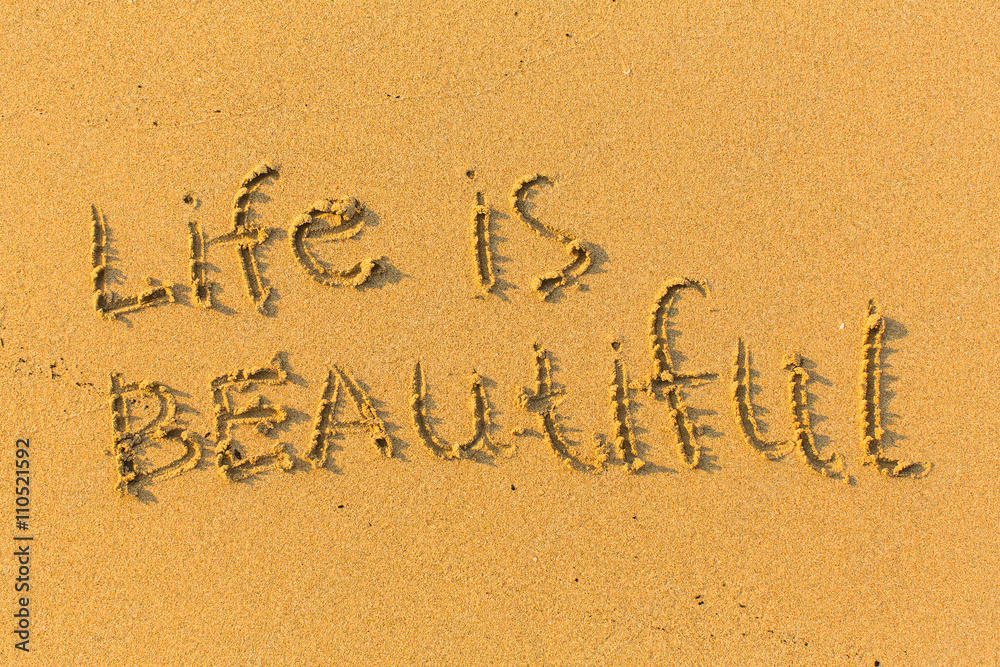 Life is
BEAutiful
Adobe Stock | #110521592